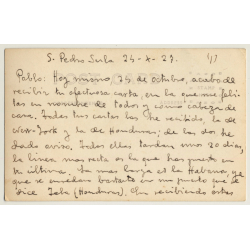 S. Pedro Sula 24-X-27. 
Pablo: Hoy mismo, 24 de octubre, acabo de
recibir tu afectuosa carta, en la que me felici-
tas en nombre de todos y como cabeza de
casa. Todas tus cartas las he recibido, la de
New-York y la de Honduras; de las dos he
dado aviso. Todas ellas tardan unos 20 dias,
la linea mas recta es la que has puesto en
tu última. La mas larga es la Habana ya
que se quedan bastante en un puerto que se
dice Tela (Honduras). En recibiendo estas